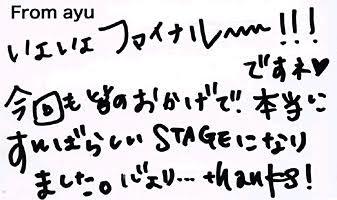 From ayu
いよいよファイナル〜〜!!!
ですネ♥
今回も皆のおかげで本当に
すんばらしいSTAGEになり
ました。ばり… thanks!